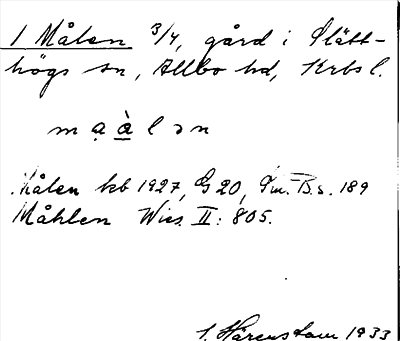 1 Målen 3/4, gård i Slätt-
högs sn, Allbo hd, Krbs l.
m ạ à l ə n
Målen kb 1927, G 20, Fm. B. s. 189
Måhlen Wies. II: 805.
1933